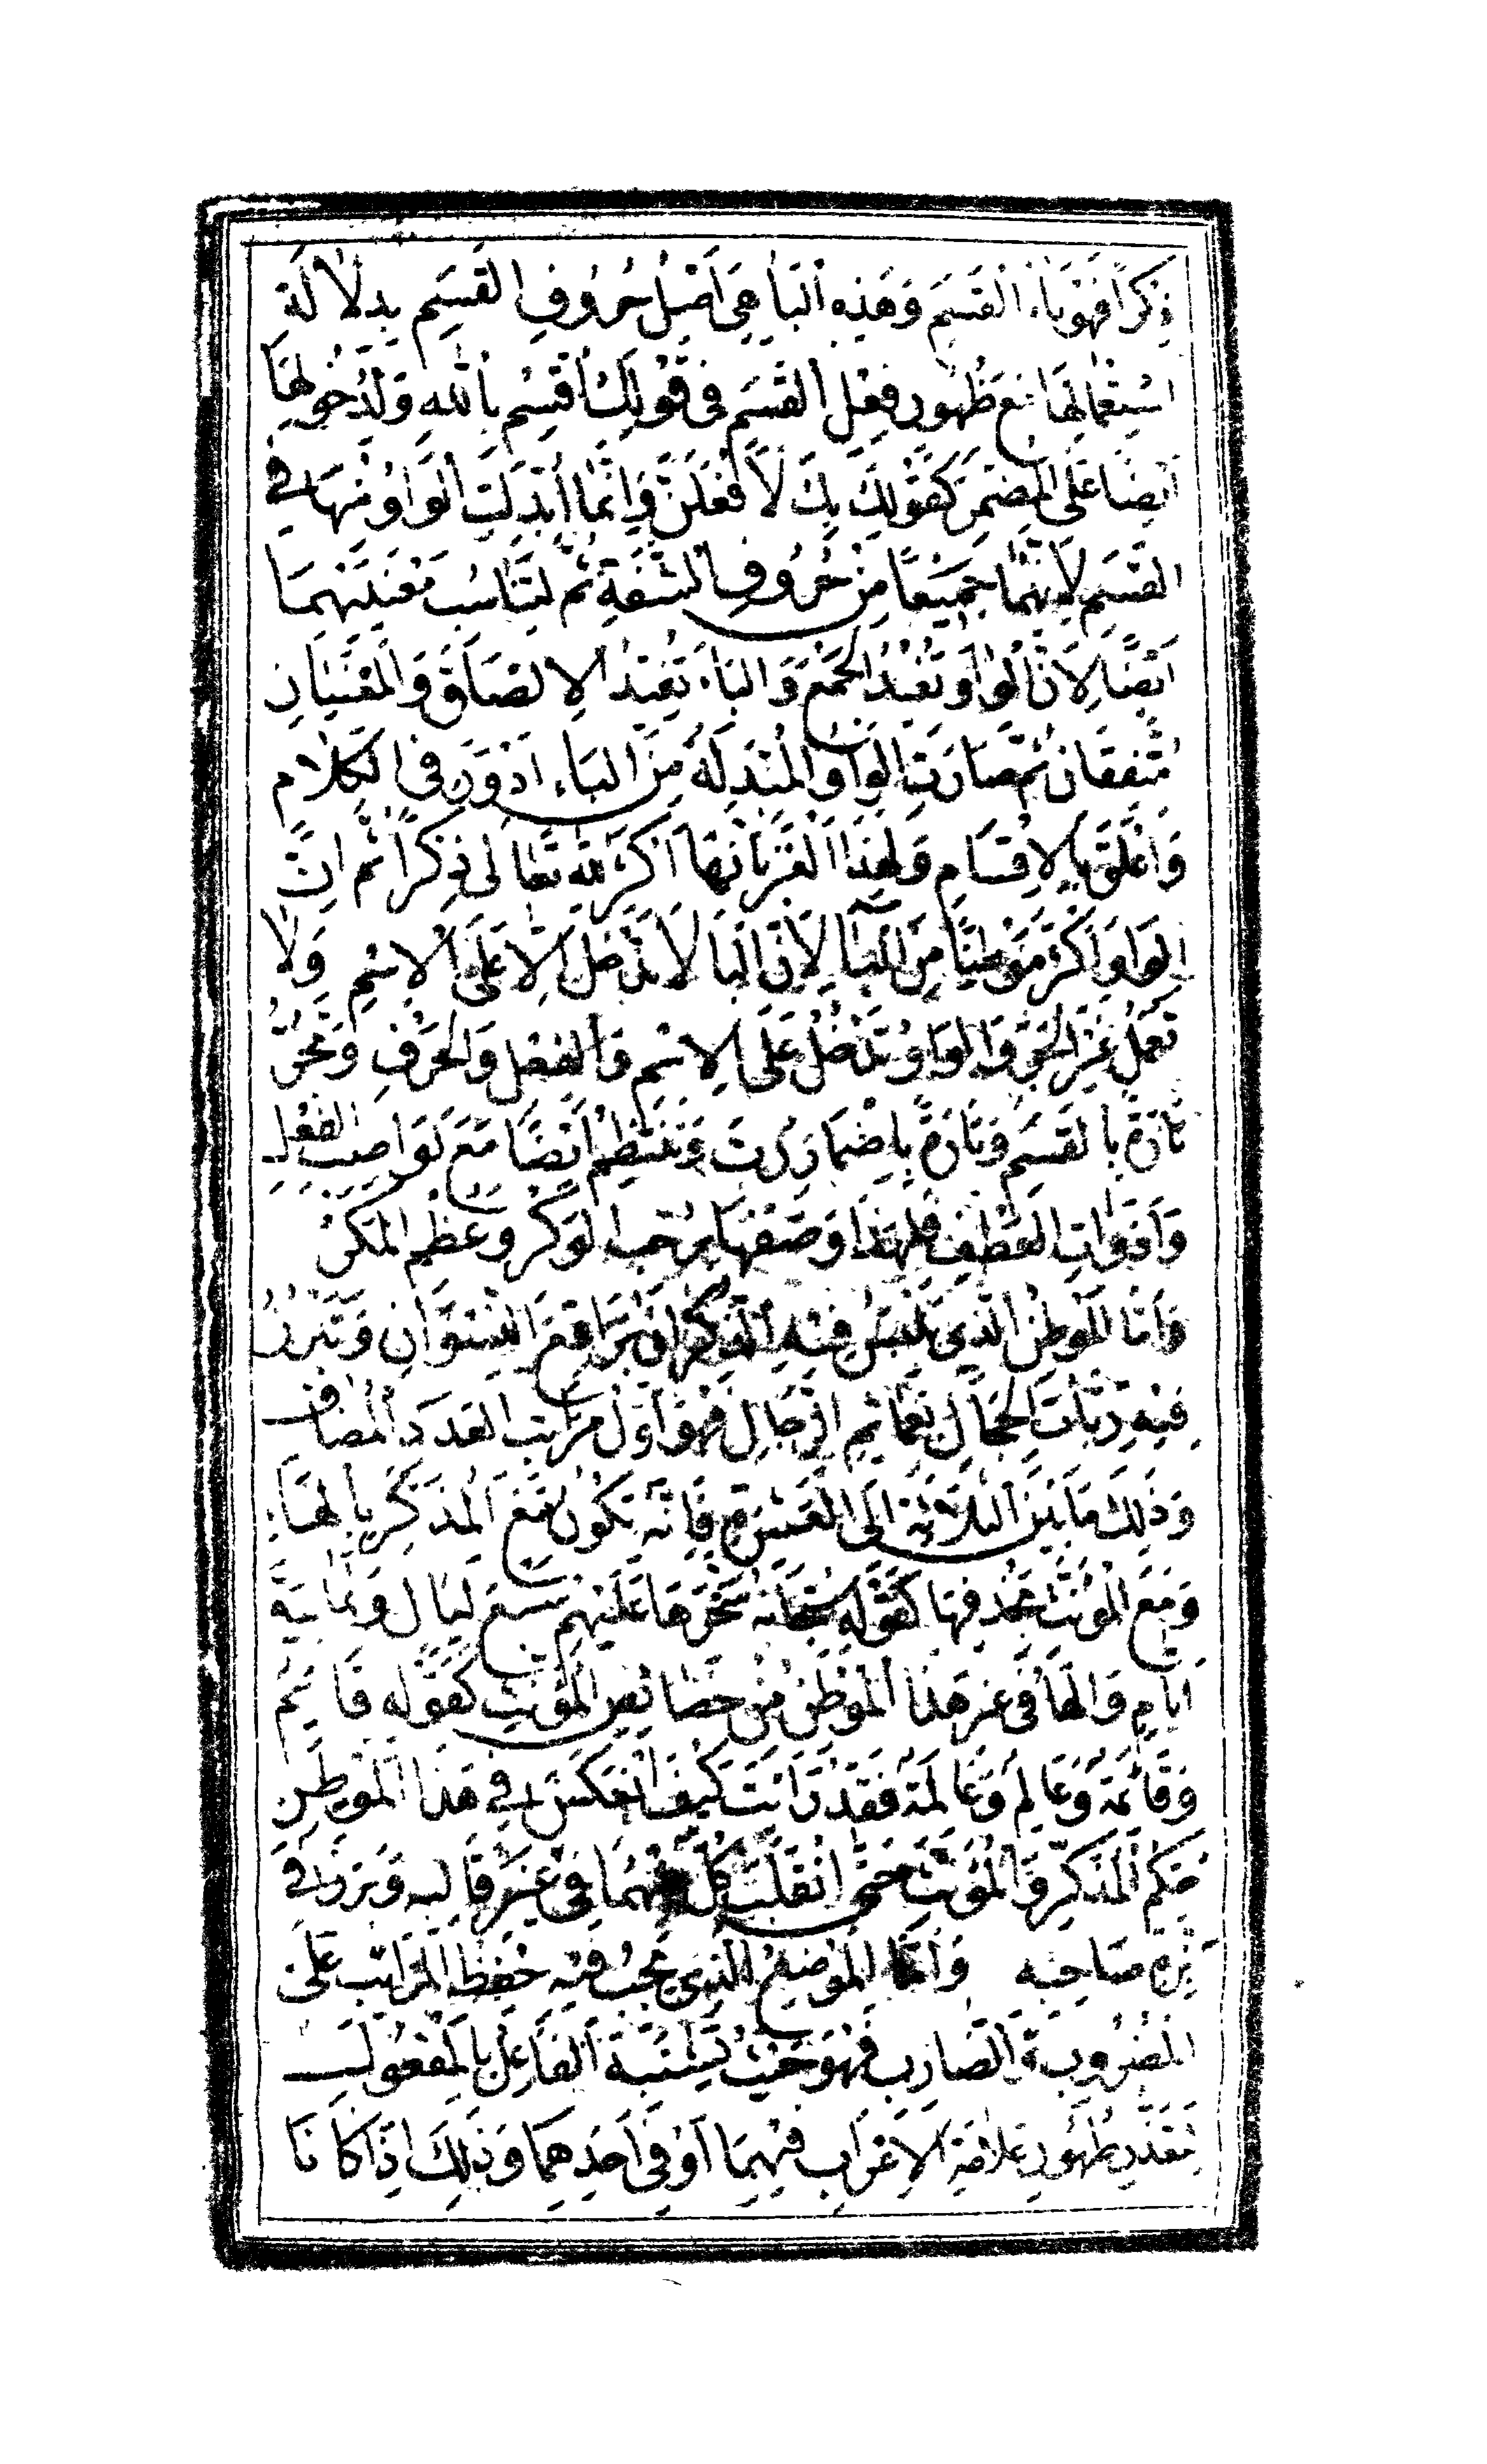 ذِكْرًا فَهْوَ بَاءُ القَسَمِ وَهَذِهِ البَا هِيَ اَصْلُ حُرُوفِ القَسَمِ بِدِلَالَةِ
اسْتِعْمَالِهَا مَعَ ظُهُورِ فِعْلِ القَسَمِ فِي قَوْلِكَ أُقْسِمُ بِاللهِ وَلِدُخُولِهَا
اَيْضًا عَلَى المُضْمَرِ كَقَوْلِكَ بِكَ لَأَفْعَلَنَّ وَاِنَّمَا أُبْدِلَتِ الوَاوُ مِنْهَا فِي
القَسَمِ لِاَنَّهُمَا جَمِيعًا مِنْ حُرُوفِ الشَّفَةِ ثُمَّ لِتَنَاسُبِ مَعْنَيَيْهِمَا
اَيْضًا لِاَنَّ الوَاوَ تُفِيدُ الجَمْعَ وَالبَاءَ تُفِيدُ الاِلْصَاقَ وَالمَعْنَيَانِ
مُتَّفِقَانِ ثُمَّ صَارَتِ الوَاوُ المُبْدَلَةُ مِنَ البَاءِ اَدْوَرَ فِي الكَلَامِ
وَاَعْلَقَ بِالاَقْسَامِ وَلِهَذَا اَلْغَزَ بِاَنَّهَا اَكْثَرُ للهِ تَعَالَى ذِكْرًا ثُمَّ اِنَّ
الوَاوَ اَكْثَرُ مَوْطِنًا مِنَ البَآءِ لِاَنَّ البَا لَا تَدْخُلُ اِلَّا عَلَى الاِسْمِ وَلَا
تَعْمَلُ غَيْرَ الجَرِّ وَالوَاوُ تَدْخُلُ عَلَى الاِسْمِ وَالفِعْلِ وَالحَرْفِ وَتَجُرُّ
تَارَةً بِالقَسَمِ وَتَارَةً بِاِضْمَارِ رُبَّ وَتَنْتَظِمُ اَيْضًا مَعَ نَوَاصِبِ الفِعْلِ
وَاَدَوَاتِ العَطْفِ فَلِهَذَا وَصَفَهَا بِرُحْبِ الوَكْرِ وَعِظَمِ المَكْرِ
وَاَمَّا المَوْطِنُ الَّذِي يَلْبَسُ فِيهِ الذُّكْرَانُ بَرَاقِعَ النِّسْوَانِ وَتَبْرُزُ
فِيهِ رَبَّاتُ الحِجَالِ بِعَمَائِمِ الرِّجَالِ فَهْوَ اَوَّلُ مَرَاتِبِ العَدَدِ المُضَافِ
وَذَلِكَ مَا بَيْنَ الثَّلَاثَةِ اِلَى العَشْرَةِ فَاِنَّهُ يَكُونُ مَعَ المُذَكَّرِ بِالهَاءِ
وَمَعَ المُؤَنَّثِ بِحَذْفِهَا كَقَوْلِهِ سُبْحَانَهُ سَخَّرَهَا عَلَيْهِمْ سَبْعَ لَيَالٍ وَثَمَانِيَةَ
اَيَّامٍ وَالهَا فِي غَيْرِ هَذَا المَوْطِنِ مِنْ خَصَائِصِ المُؤَنَّثِ كَقَوْلِهِ قَائِمٌ
وَقَائِمَةٌ وَعَالِمٌ وَعَالِمَةٌ فَقَدْ رَاَيْتَ كَيْفَ انْعَكَسَ فِي هَذَا المَوْطِنِ
حُكْمُ المُذَكَّرِ وَالمُؤَنَّثِ حَتَّى انْقَلَبَ كُلٌّ مِنْهُمَا فِي غَيْرِ قَالَبِهِ وَبَرَزَ فِي
بِزَّةِ صَاحِبِهِ وَاَمَّا المَوْضِعُ الَّذِي يَجِبُ فِيهِ حِفْظُ المَرَاتِبِ عَلَى
المَضْرُوبِ وَالضَّارِبِ فَهْوَ حَيْثُ يَشْتَبِهُ الفَاعِلُ بِالمَفْعُولِ
لِتَعَذُّرِ ظُهُورِ عَلَامَةِ الاِعْرَابِ فِيهِمَا اَوْ فِي اَحَدِهِمَا وَذَلِكَ اِذَا كَانَا